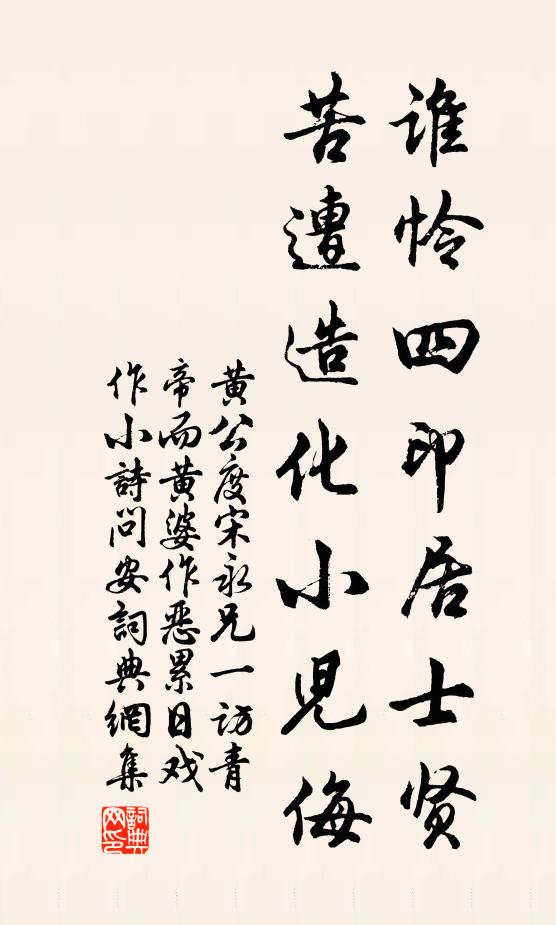 谁怜四印居士贤
苦遭造化小児侮
黄公度宋永兄一访青
帝而黄婆作恶累日戏
作小詩问安詞典網集
詞典
网印